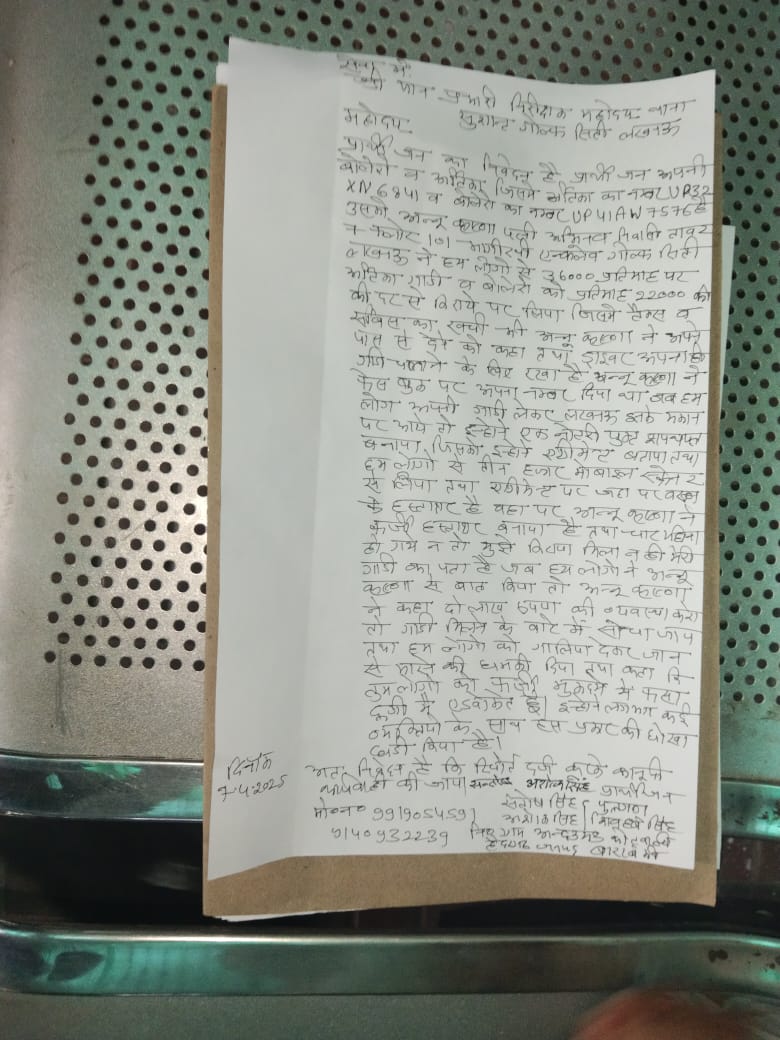 सेवा में,
श्री मान प्रभारी निरीक्षक महोदय थाना
सुशान्त गोल्फ सिटी लखनऊ
महोदय
प्रार्थी जन का निवेदन है प्रार्थी जन अपनी
बोलेरो व अर्टिका जिसमे अर्टिका का नम्बर UP32
XN6841 व बोलेरो का नम्बर UP41AW7576 है
उसको अन्नू कृष्णा पत्नी अभिनव निवासी टावर
फ्लाट 101 भागीरथी एन्क्लेव गोल्फ सिटी
लखनऊ ने हम लोगो से 36000 प्रतिमाह पर
अर्टिका गाडी व बोलेरो को प्रतिमाह 22000 की
की दर से किराये पर लिया जिसमे टैक्स व
सर्विस का खर्चा भी अन्नू कृष्णा ने अपने
पास से देने को कहा तथा ड्राइवर अपना ही
गाडी चलाने के लिए रखा है अन्नू कृष्णा ने
फेस बुक पर अपना नम्बर दिया था जब हम
लोग अपनी गाडी लेकर लखनऊ इनके मकान
पर आये तो इन्होने एक नोटरी युक्त शपथपत्र
बनाया जिसको इन्होने एग्रीमेन्ट बताया तथा
हम लोगो से तीन हजार मोबाइल स्कैनर
से लिया तथा एग्रीमेन्ट पर जहा पर
के हस्ताक्षर है वहा पर अन्नू कृष्णा ने
फर्जी हस्ताक्षर बनाया है तथा चार महिना
हो गये न तो मुझे किराया मिला न ही मेरी
गाडी का पता है जब हम लोगो ने अन्नू
कृष्णा से बात किया तो अन्नू कृष्णा
ने कहा दो लाख रुपया की व्यवस्था करो
तो गाडी मिलने के बारे में सोचा जाय
तथा हम लोगो को गालिया देकर जान
से मारने की धमकी दिया तथा कहा कि
तुम लोगो को फर्जी मुकदमे में फसा
दूगी मै एडवोकेट हूँ। इन्होने लगभग कई
व्यक्तियो के साथ इस प्रकार की धोखा
धडी किया है।
अतः निवेदन है कि रिपोर्ट दर्ज करके कानूनी
कार्यवाही की जाय
प्रार्थीजन
दिनाँक
7-4-2025
मो०न० 9919054591
संतोष सिंह
अशोक सिंह
9140932239